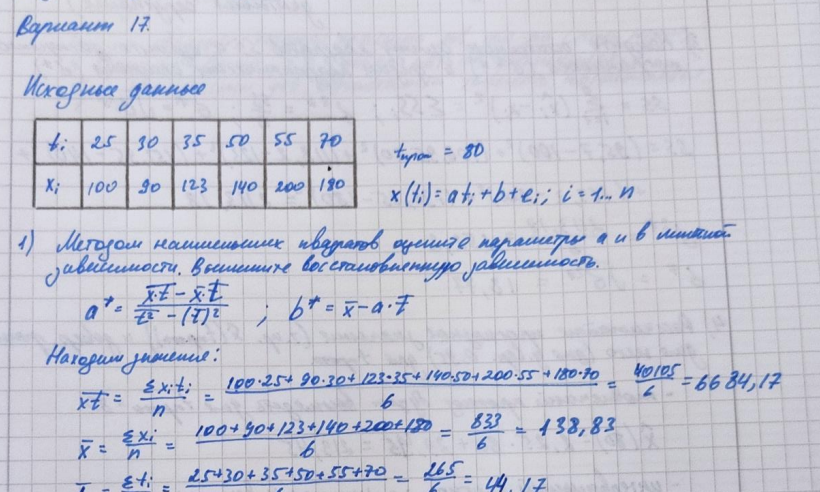 Вариант 17.
Исходные данные
ti 25 30 35 50 55 70
xi 100 90 123 140 200 180
tпрог = 80
x(ti) = ati + b + ei; i = 1... n
1) Методом наименьших квадратов оцените параметры a и b в линейной
зависимости. Выпишите восстановленную зависимость.
a* = (x̄·t̄ - x̄·t̄) / (t̄² - (t̄)²) ; b* = x̄ - a·t̄
Находим значения:
x̄t̄ = Σxiti / n = (100·25 + 90·30 + 123·35 + 140·50 + 200·55 + 180·70) / 6 = 40105 / 6 = 6684,17
x̄ = Σxi / n = (100 + 90 + 123 + 140 + 200 + 180) / 6 = 833 / 6 = 138,83
t̄ = Σti / n = (25 + 30 + 35 + 50 + 55 + 70) / 6 = 265 / 6 = 44,17